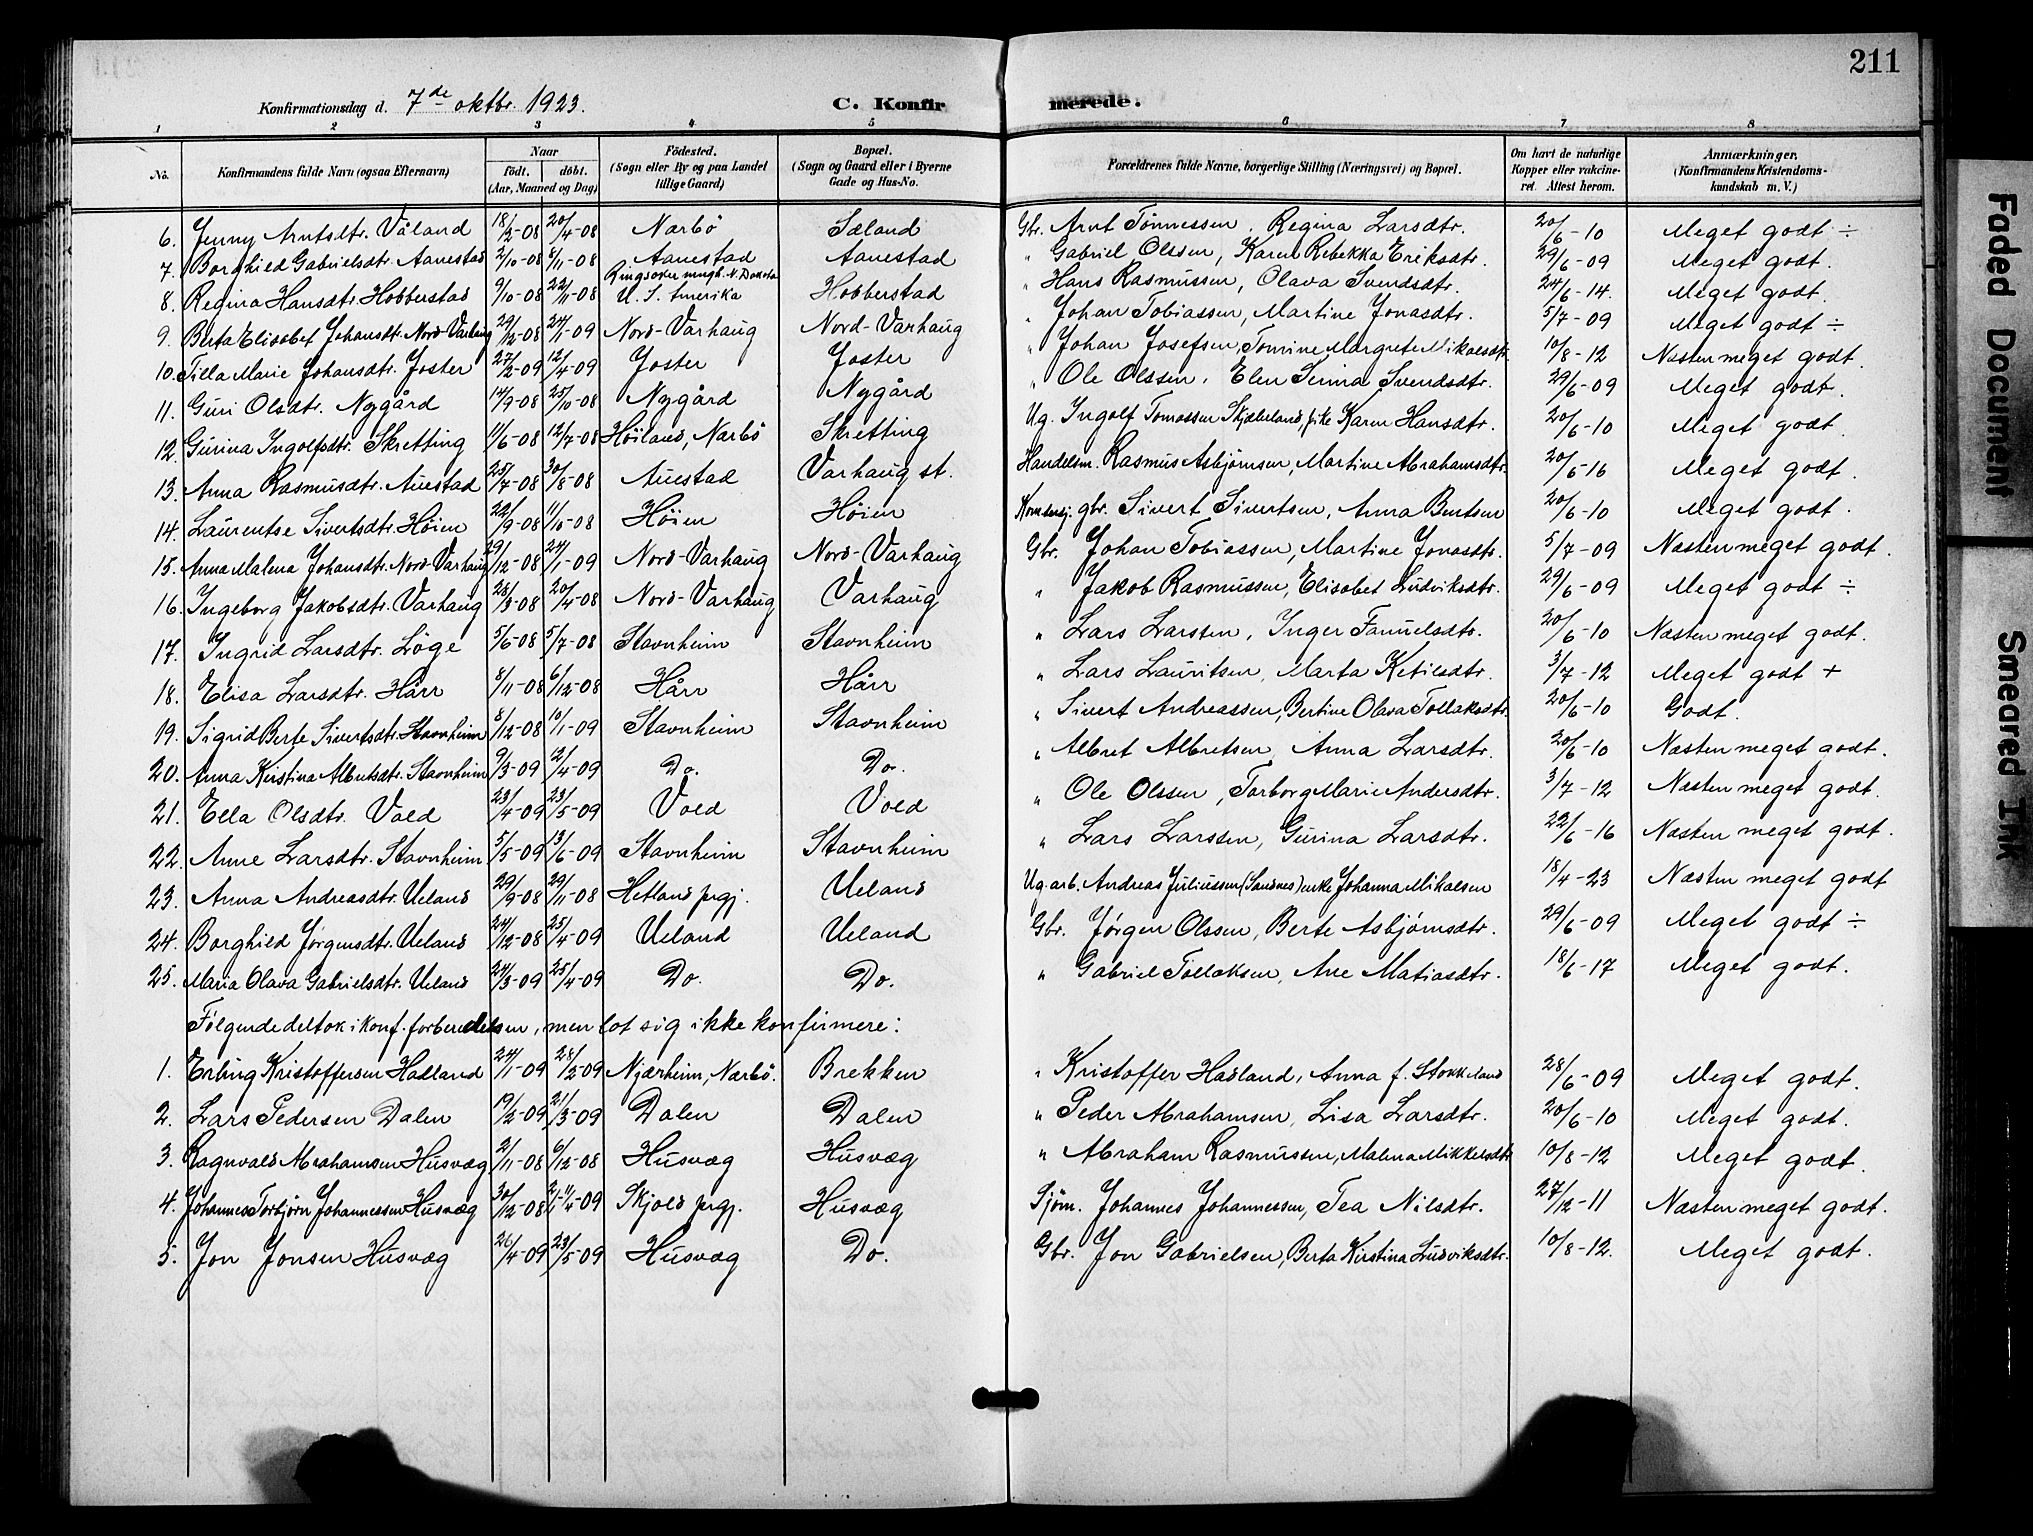 211
Konfirmationsdag d. 7de oktbr. 1923.
C. Konfirmerede.
1 2 3 4 5 6 7 8
No. Konfirmandens fulde Navn (ogsaa Efternavn) Naar født. døbt. (Aar, Maaned og Dag) Födested. (Sogn eller By og paa Landet tillige Gaard) Bopæl. (Sogn og Gaard eller i Byerne Gade og Hus-No. Forældrenes fulde Navne, borgerlige Stilling (Næringsvei) og Bopæl. Om havt de naturlige Kopper eller vakcineret. Attest herom. Anmærkninger. (Konfirmandens Kristendomskundskab m. V.)
6. Jenny Arntsdtr. Våland 18/2-08 20/4-08 Nærbö Sæland Gbr. Arnt Tönnessen, Regina Larsdtr. 20/6-10 Meget godt ÷
7. Borghild Gabrielsdtr. Aanestad 2/10-08 8/11-08 Aanestad Aanestad " Gabriel Olssen, Karen Rebekka Eriksdtr. 29/6-09 Meget godt.
8. Regina Hansdtr. Hobberstad 9/10-08 22/11-08 Ringsaker mngh. N. Dakota U. S. Amerika Hobberstad " Hans Rasmussen, Olava Svendsdtr. 24/6-14. Meget godt.
9. Berta Elisabet Johansdtr. Nord-Varhaug 29/12-08 24/1-09 Nord-Varhaug Nord-Varhaug " Johan Tobiassen, Martine Jonasdtr. 5/7-09 Meget godt ÷
10. Tilla Marie Johansdtr. Joster 27/2-09 12/4-09 Joster Joster " Johan Josefsen, Tomine Margrete Mikalsdtr. 10/8-12 Næsten meget godt.
11. Guri Olsdtr. Nygård 14/9-08 25/10-08 Nygård Nygård " Ole Olssen, Elen Serina Svendsdtr. 29/6-09 Meget godt.
12. Gurina Ingolfsdtr. Skretting 11/6-08 12/7-08 Höiland, Nærbö Skretting Ug. Ingolf Tomassen Skjæveland, pike Karen Hansdtr. 20/6-10 Meget godt.
13. Anna Rasmusdtr. Auestad 25/7-08 30/8-08 Auestad Varhaug st. Handelsm. Rasmus Asbjörnsen, Martine Abrahamsdtr. 20/6-16 Meget godt.
14. Laurentse Sivertsdtr. Höien 22/9-08 11/10-08 Höien Höien gbr. Sivert Sivertsen, Anna Bentsen 20/6-10 Meget godt.
15. Anna Malena Johansdtr. Nord-Varhaug 29/12-08 24/1-09 Nord-Varhaug Nord-Varhaug Gbr. Johan Tobiassen, Martine Jonasdtr. 5/7-09 Næsten meget godt.
16. Ingeborg Jakobsdtr. Varhaug 28/3-08 20/4-08 Nord-Varhaug Varhaug " Jakob Rasmussen, Elisabet Ludviksdtr. 29/6-09 Meget godt ÷
17. Ingrid Larsdtr. Löge 5/6-08 5/7-08 Stavnheim Stavnheim " Lars Larssen, Inger Fanuelsdtr. 20/6-10 Næsten meget godt.
18. Elisa Larsdtr. Hårr 8/11-08 6/12-08 Hårr Hårr " Lars Lauritsen, Marta Ketilsdtr. 3/7-12 Meget godt +
19. Sigrid Berte Sivertsdtr. Stavnheim 8/12-08 10/1-09 Stavnheim Stavnheim " Sivert Andreassen, Bertine Olava Tollaksdtr. 20/6-10 Godt.
20. Anna Kirstina Albretsdtr. Stavnheim 9/3-09 12/4-09 Do. Do. " Albret Albretsen, Anna Larsdtr. 20/6-10 Næsten meget godt.
21. Ella Olsdtr. Vold 23/4-09 23/5-09 Vold Vold " Ole Olssen, Torborg Marie Andersdtr. 3/7-12 Næsten meget godt.
22. Anne Larsdtr. Stavnheim 5/5-09 13/6-09 Stavnheim Stavnheim " Lars Larssen, Gurina Larsdtr. 22/6-16 Næsten meget godt.
23. Anna Andreasdtr. Ueland 29/9-08 29/11-08 Hetland prgj. Ueland Ug. arb. Andreas Juliussen (Sandnes) enke Johanna Mikalsen 18/4-23 Næsten meget godt
24. Borghild Jørgensdtr. Ueland 24/12-08 25/4-09 Ueland Ueland Gbr. Jørgen Olssen, Berte Asbjørnsdtr. 29/6-09 Meget godt ÷
25. Maria Olava Gabrielsdtr. Ueland 24/3-09 25/4-09 Do. Do. " Gabriel Tollaksen, Ane Matiasdtr. 18/6-17 Meget godt.
Følgende deltok i konf. forberedelsen, men lot sig ikke konfirmere:
1. Erling Kristoffersen Hadland 24/1-09 28/2-09 Njærheim, Nærbö. Brekken " Kristoffer Hadland, Anna f. Stokkland 28/6-09 Meget godt.
2. Lars Pedersen Dalen 19/2-09 21/3-09 Dalen Dalen " Peder Abrahamsen, Lisa Larsdtr. 20/6-10 Meget godt.
3. Ragnvald Abrahamsen Husvæg 2/11-08 6/12-08 Husvæg Husvæg " Abraham Rasmussen, Malena Mikkelsdtr. 10/8-12 Meget godt.
4. Johannes Torbjörn Johannessen Husvæg 30/12-08 Skjold prgj. Husvæg Sjöm. Johannes Johannessen, Tea Nilsdtr. 27/12-11 Næsten meget godt.
5. Jon Jonsen Husvæg 26/4-09 23/5-09 Husvæg Do. Gbr. Jon Gabrielsen, Berta Kirstina Ludviksdtr. 10/8-12. Meget godt.
Faded Document
Smeared Ink